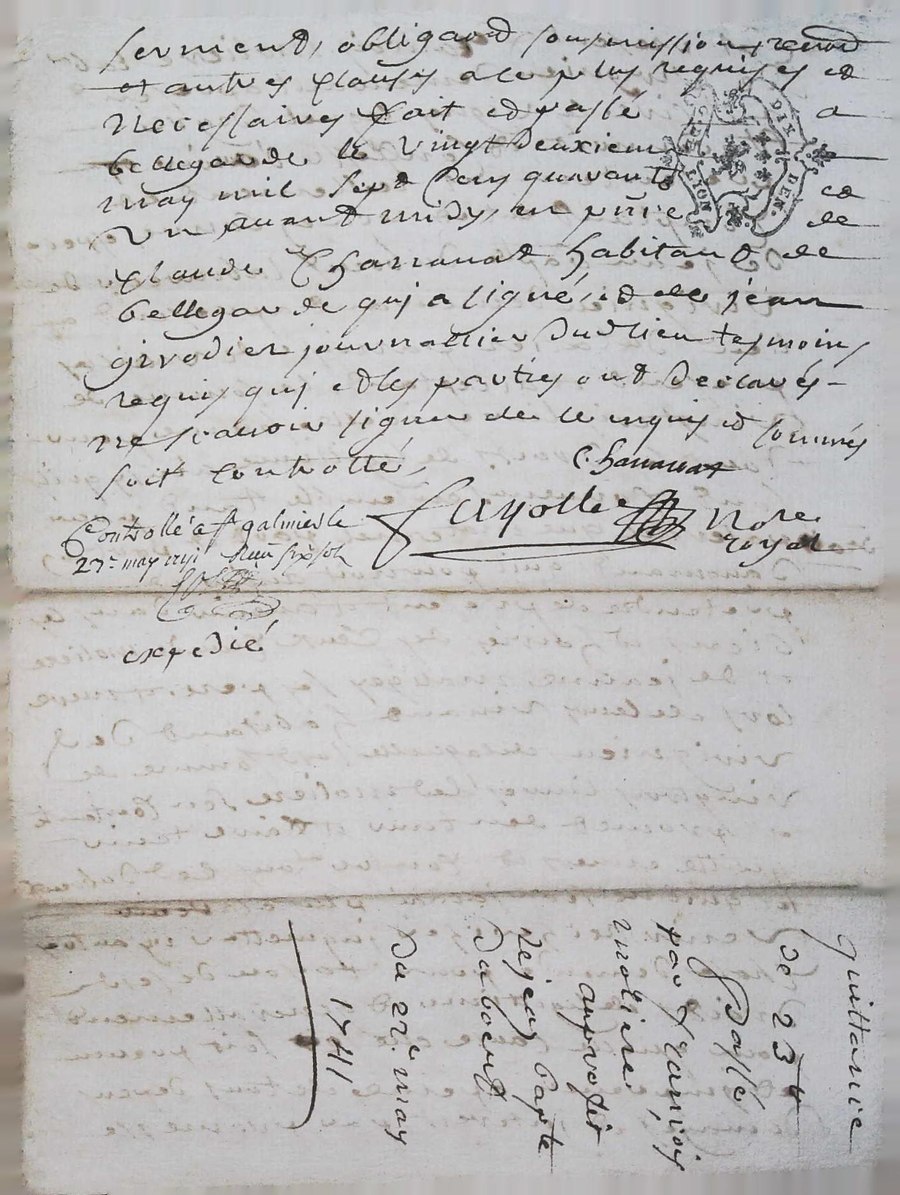 serment, obligaõn soumission, renoõn
et autres clauses a ce plus requises et
necessaires fait et passé a
bellegarde le vingt deuxieme
may mil sept cens quarante et
un avant midy en pñce de
Claude Charranat habitant de
bellegarde qui a signé, et de jean
girodier journallier dud lieu tesmoins
requis qui et les parties ont declarés
ne scavoir signer de ce enquis et sommés
soit controllé,
Charranat
fayolle nore
royal
Controllé a st galmier le
27e may 1741 Reçu six sol
expedié
GEN LION
DIX DEN.
quittance
de 23 tt
passée
par francois
moliere
au proffit
de jean bapte
duboeuf
Du 22e may
1741